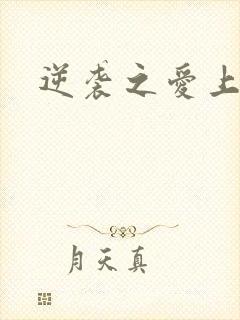 逆袭之愛上
月天真